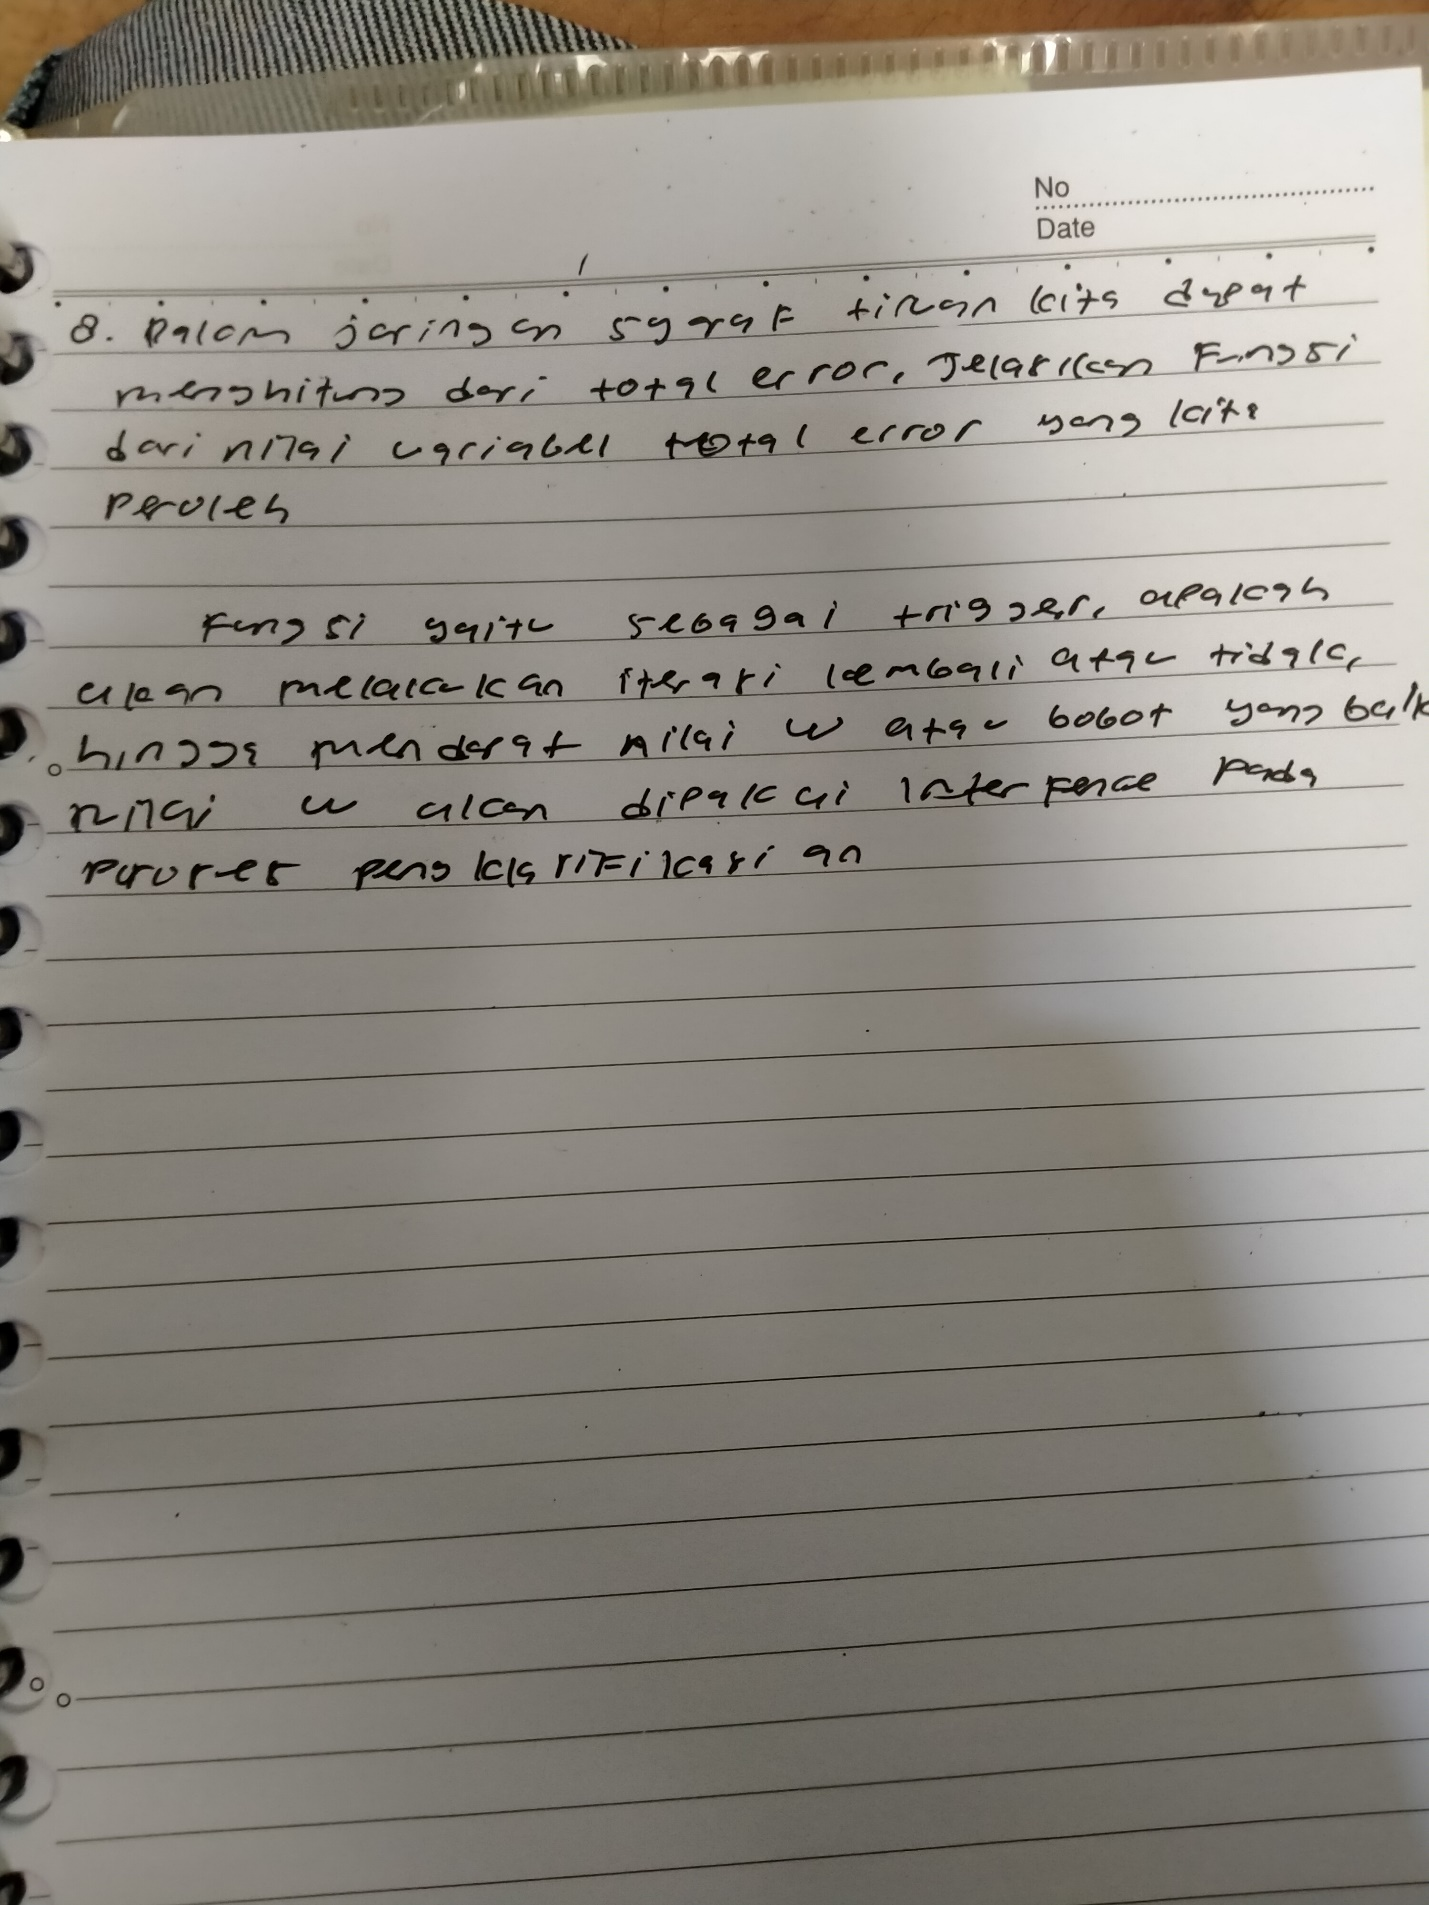 No
Date
8. Dalam jaringan syaraf tiruan kita dapat
menghitung dari total error, Jelaskan Fungsi
dari nilai variabel total error yang kita
Peroleh
Fungsi yaitu sebagai trigger, apakah
akan melakukan iterasi kembali atau tidak,
hingga mendapat nilai w atau bobot yang baik
nilai w akan dipakai Interfence pada
Proses pengklasifikasian